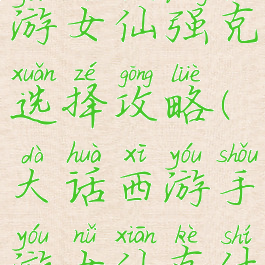 游女仙强克
xuǎn zé gōng lüè
选择攻略(
dà huà xī yóu shǒu
大话西游手
yóu nǚ xiān kè shí